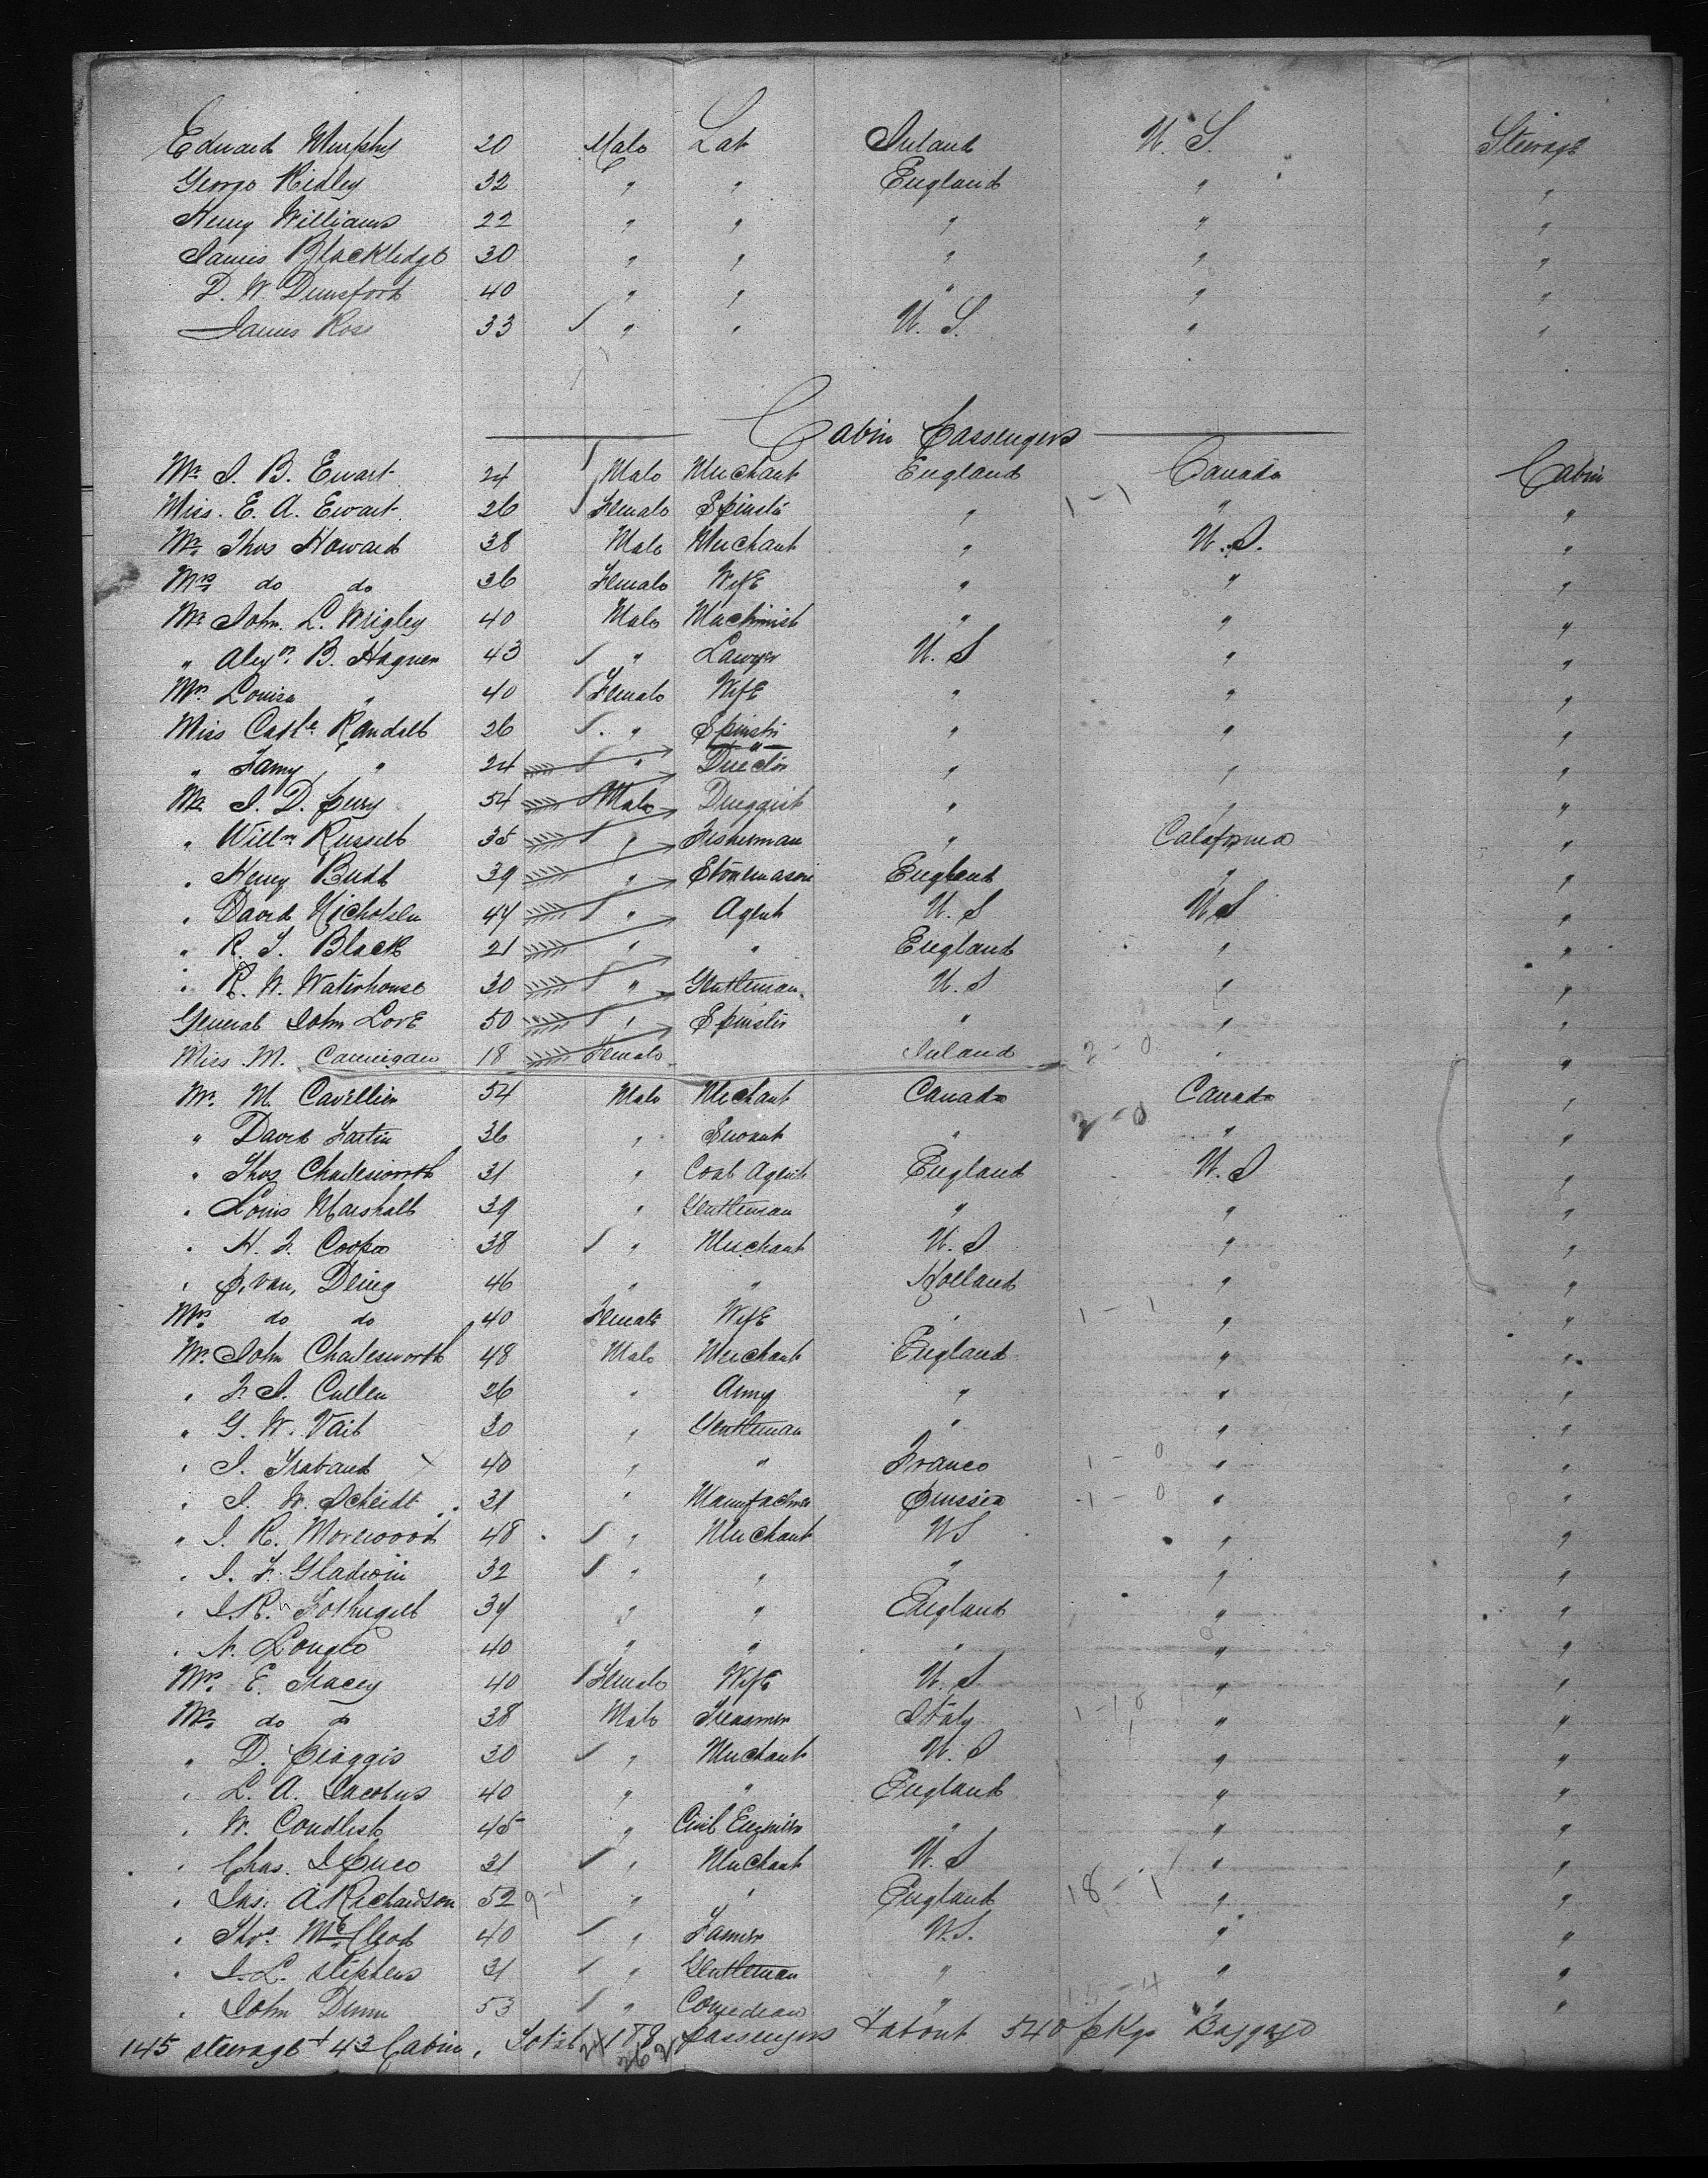 Edward Murphy 20 Male Lab Ireland U. S. Steerage
George Ridley 32 " " England " "
Henry Williams 22 " " " " "
James Blackledge 30 " " " " "
D. W. Dunsford 40 " " " " "
James Ross 33 " " U. S. " "
Cabin Passengers
Mr. J. B. Ewart 24 Male Merchant England Canada Cabin
Miss. E. A. Ewart. 26 Female Spinster " 1-1 " "
Mr. Thos Howard 38 Male Merchant " U. S. "
Mrs do do 36 Female Wife " " "
Mr John. L. Wrigley 40 Male Machinist " " "
" Alexr. B. Hagner 43 " Lawyer U. S " "
Mrs. Louisa " 40 Female Wife " " "
Miss Cathe Randall 26 " Spinster " " "
" Fanny " 24 " " Director " " "
Mr. J. D. Perry 54 Male Druggist " " "
" Willm Russell 35 " Fisherman " California "
" Henry Budd 39 " Stonemason England " "
" David Nicholsen 44 " Agent U. S U. S "
" R. J. Black 21 " " England " "
" R. W. Waterhouse 30 " Gentleman U. S " "
General John Love 50 " Spinster " " "
Miss. M. Cannigan 18 Female Ireland 2-0 " "
Mr. M. Cavellier 54 Male Merchant Canada Canada "
" David Fartin 36 " Servant " 2-0 " "
" Thos Charlesworth 31 " Coal Agent England U. S "
" Louis Marshall 39 " Gentleman " " "
" H. F. Cooper 38 " Merchant U. S " "
" P. van, Dling 46 " " Holland " "
Mrs. do do 40 Female Wife " 1-1 " "
Mr. John Charlesworth 48 Male Merchant England " "
" F. J. Cullen 26 " Army " " "
" G. W. Vail 30 " Gentleman " " "
" J. Traband 40 " " France 1-0 " "
" J. W. Scheidt 31 " Manufacturer Prussia 1-0 " "
" J. R. Morewood 48 " Merchant US " "
" J. F. Gladwin 32 " " " " "
" J. R. Fothergill 34 " " England " "
" N. Longco 40 " " " " "
Mrs. E. Stacey 40 Female Wife U. S " "
Mr. do do 38 Male Treasurer Italy " "
" D. Piaggis 30 " Merchant U. S " "
" L. A. Jacobus 40 " " England " "
" W. Condlish 45 " Civil Engineer " " "
" Chas. 31 " Merchant U. S " "
" Jas. A Richardson 52 9-1 " " England 18-1 " "
" Thos. McCleod 40 " Farmer U.S. " "
" J. L. Stephens 31 " Gentleman " " "
" John Dunn 53 " Comedian " " "
145 steerage + 43 Cabin, Total 188 passengers & about 540 pkgs Baggage
262